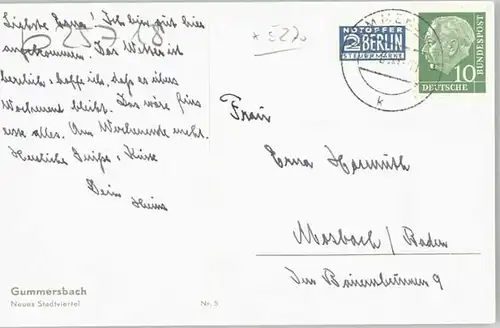 Liebste Erna! Ich bin gut hier
angekommen. Das Wetter ist
herrlich, hoffe ich, daß es übers
Wochenend bleibt. Das wäre fürs
erste alles. Am Wochenende mehr.
Herzliche Grüße + Küsse
Dein
Heinz
NOTOPFER
2 BERLIN
STEUERMARKE
DEUTSCHE BUNDESPOST
10
k
Frau
Erna
Mosbach / Baden
Gummersbach
Neues Stadtviertel
Nr. 5